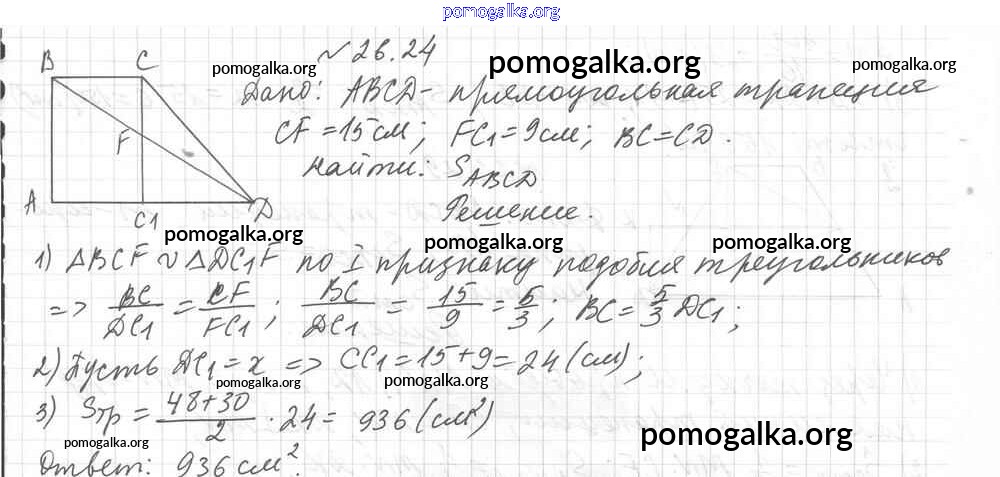 pomogalka.org
№ 26.24
pomogalka.org pomogalka.org pomogalka.org
B C
Дано: ABCD - прямоугольная трапеция
CF = 15 см; FC1 = 9 см; BC = CD.
F
Найти: S ABCD
A C1 D
Решение.
pomogalka.org pomogalka.org pomogalka.org
1) ΔBCF ~ ΔDC1F по I признаку подобия треугольников
=> BC/DC1 = CF/FC1; BC/DC1 = 15/9 = 5/3; BC = 5/3 DC1;
2) Пусть DC1 = x => CC1 = 15 + 9 = 24 (см);
pomogalka.org pomogalka.org
3) Sтр = (48+30)/2 · 24 = 936 (см²)
pomogalka.org pomogalka.org
Ответ: 936 см².